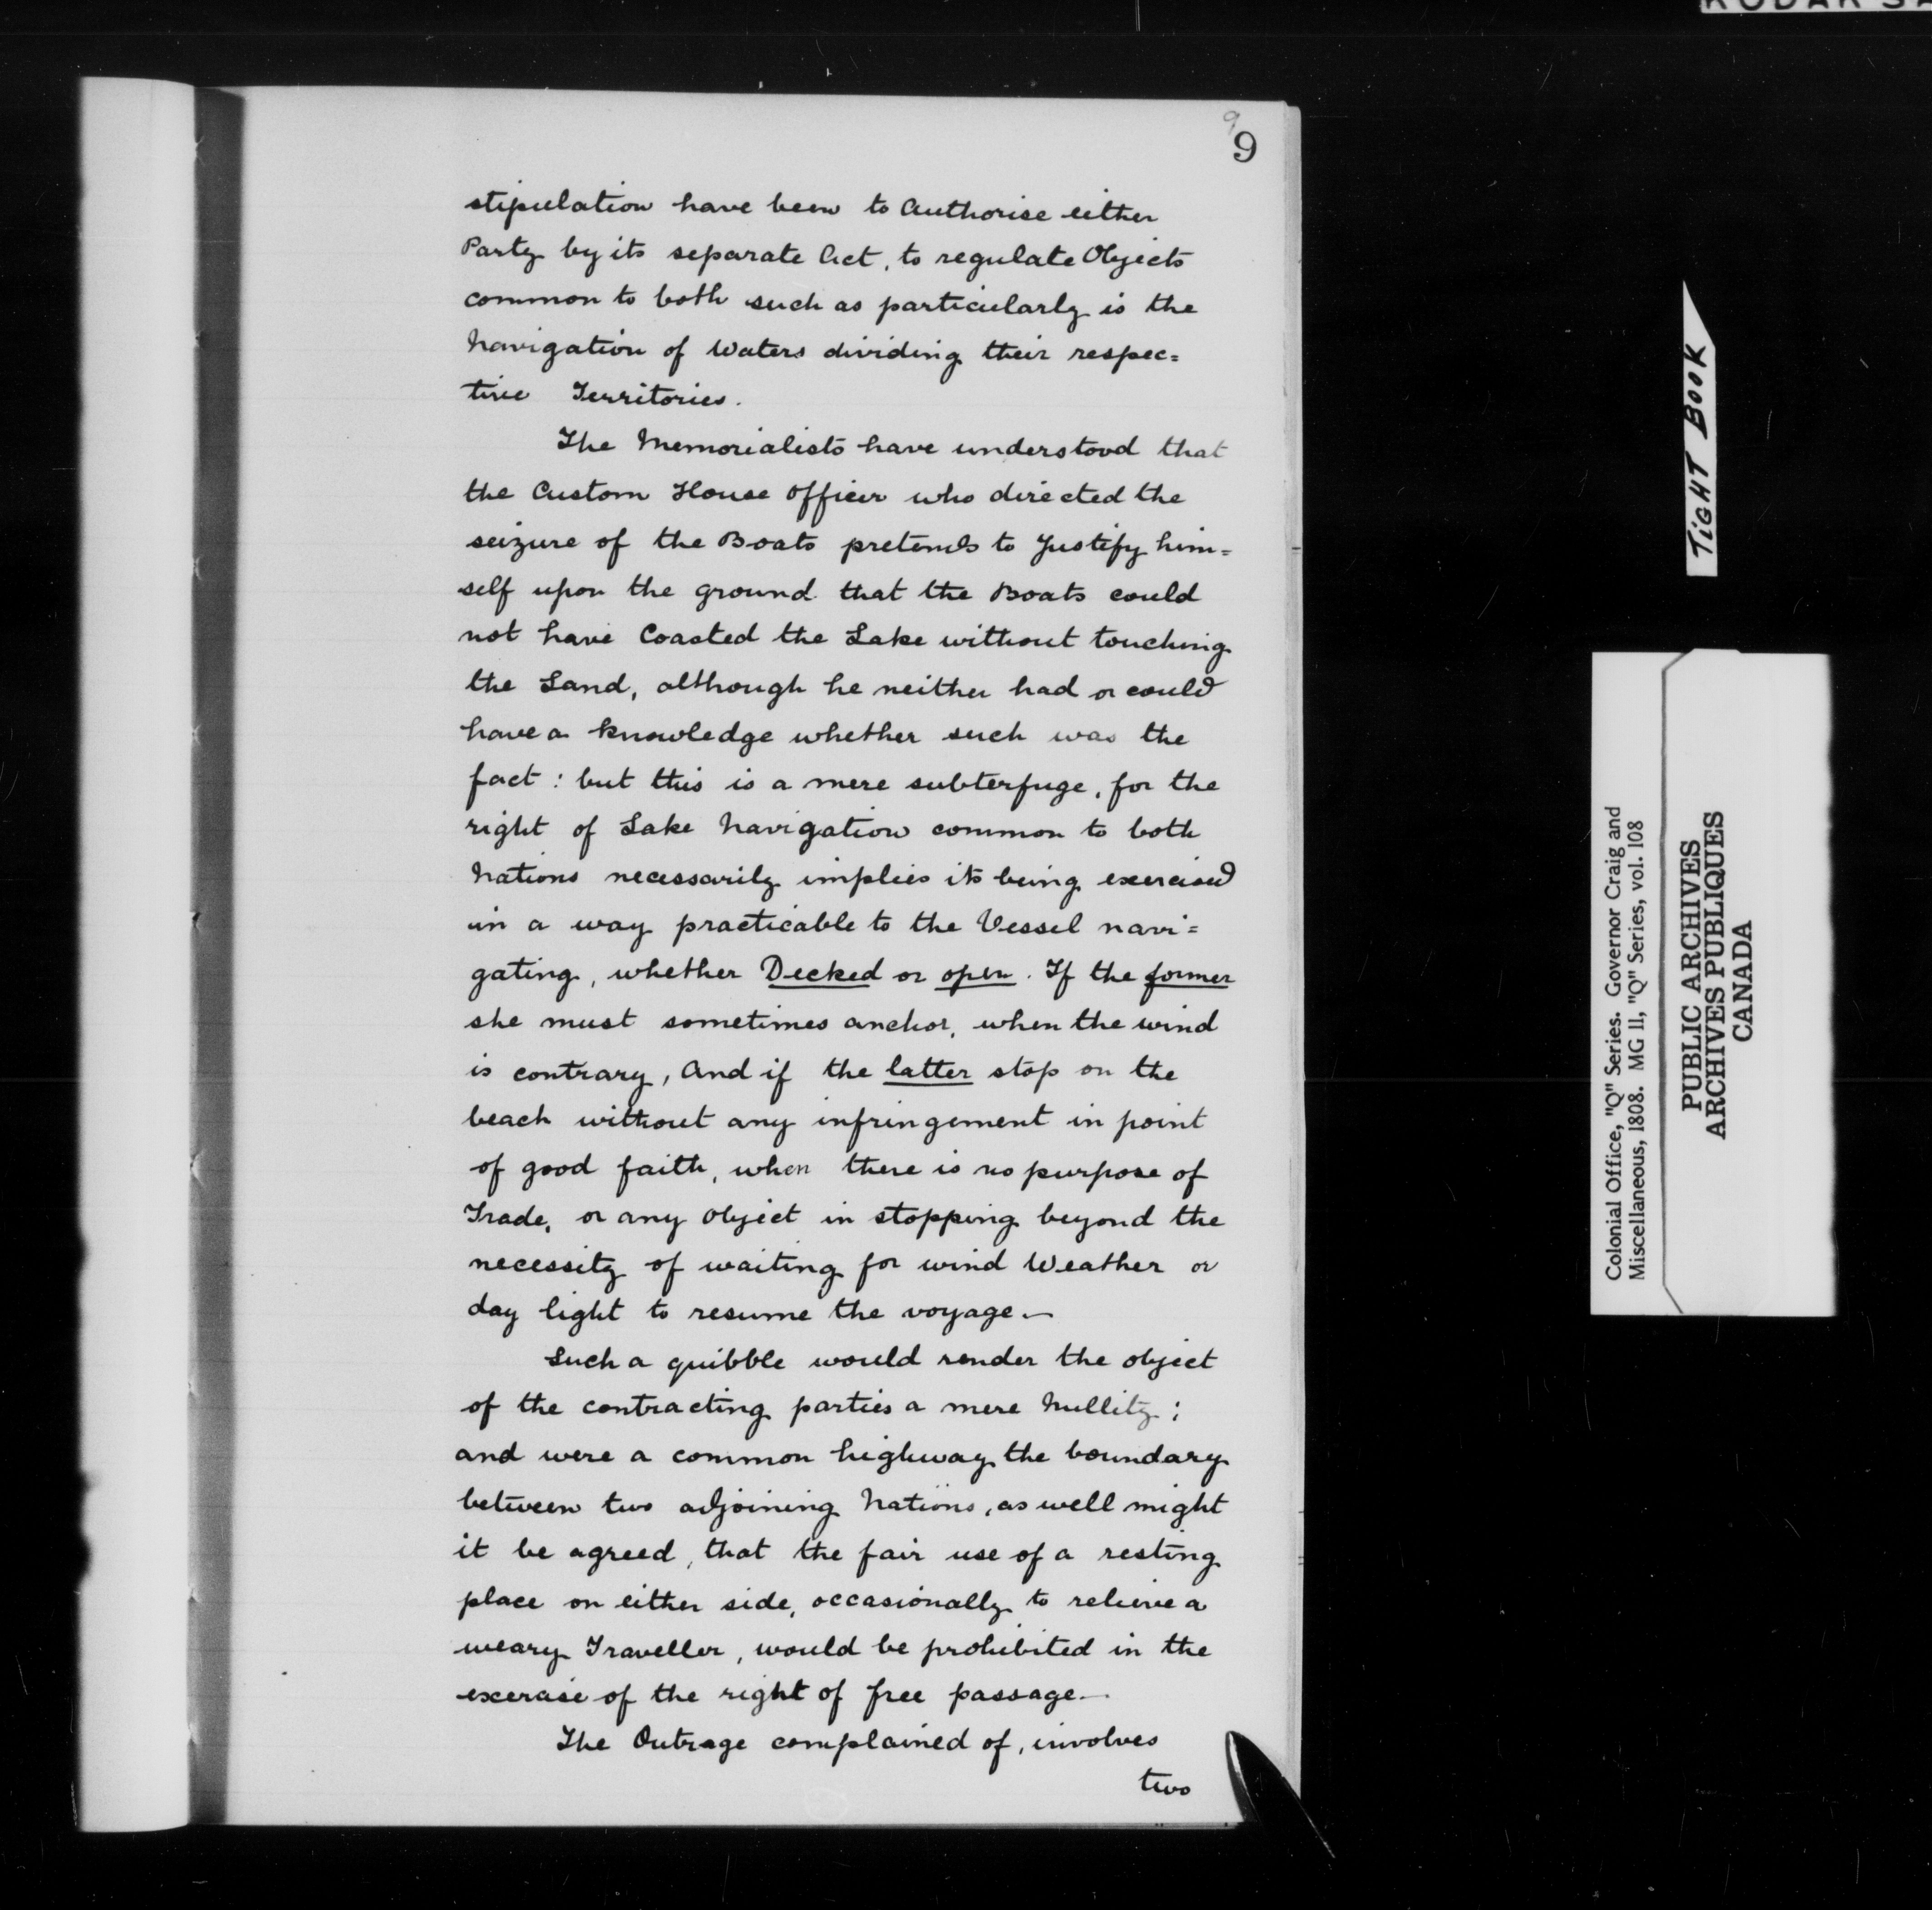 9
9
stipulation have been to Authorise either
Party by its separate Act, to regulate Objects
common to both such as particularly is the
Navigation of Waters dividing their respec=
tive Territories.
The Memorialists have understood that
the Custom House Officer who directed the
seizure of the Boats pretends to Justify him=
self upon the ground that the Boats could
not have Coasted the Lake without touching
the Land, although he neither had or could
have a knowledge whether such was the
fact : but this is a mere subterfuge, for the
right of Lake Navigation common to both
Nations necessarily implies its being exercised
in a way practicable to the Vessel navi=
gating, whether Decked or open. If the former
she must sometimes anchor, when the wind
is contrary, And if the latter stop on the
beach without any infringement in point
of good faith, when there is no purpose of
Trade, or any Object in stopping beyond the
necessity of waiting for wind Weather or
day light to resume the voyage.—
Such a quibble would render the object
of the contracting parties a mere Nullity ;
and were a common highway the boundary
between two adjoining Nations, as well might
it be agreed, that the fair use of a resting
place on either side, occasionally to relieve a
weary Traveller, would be prohibited in the
exercise of the right of free passage.—
The Outrage complained of, involves
two
TIGHT BOOK
Colonial Office, "Q" Series. Governor Craig and
Miscellaneous, 1808. MG 11, "Q" Series, vol. 108
PUBLIC ARCHIVES
ARCHIVES PUBLIQUES
CANADA